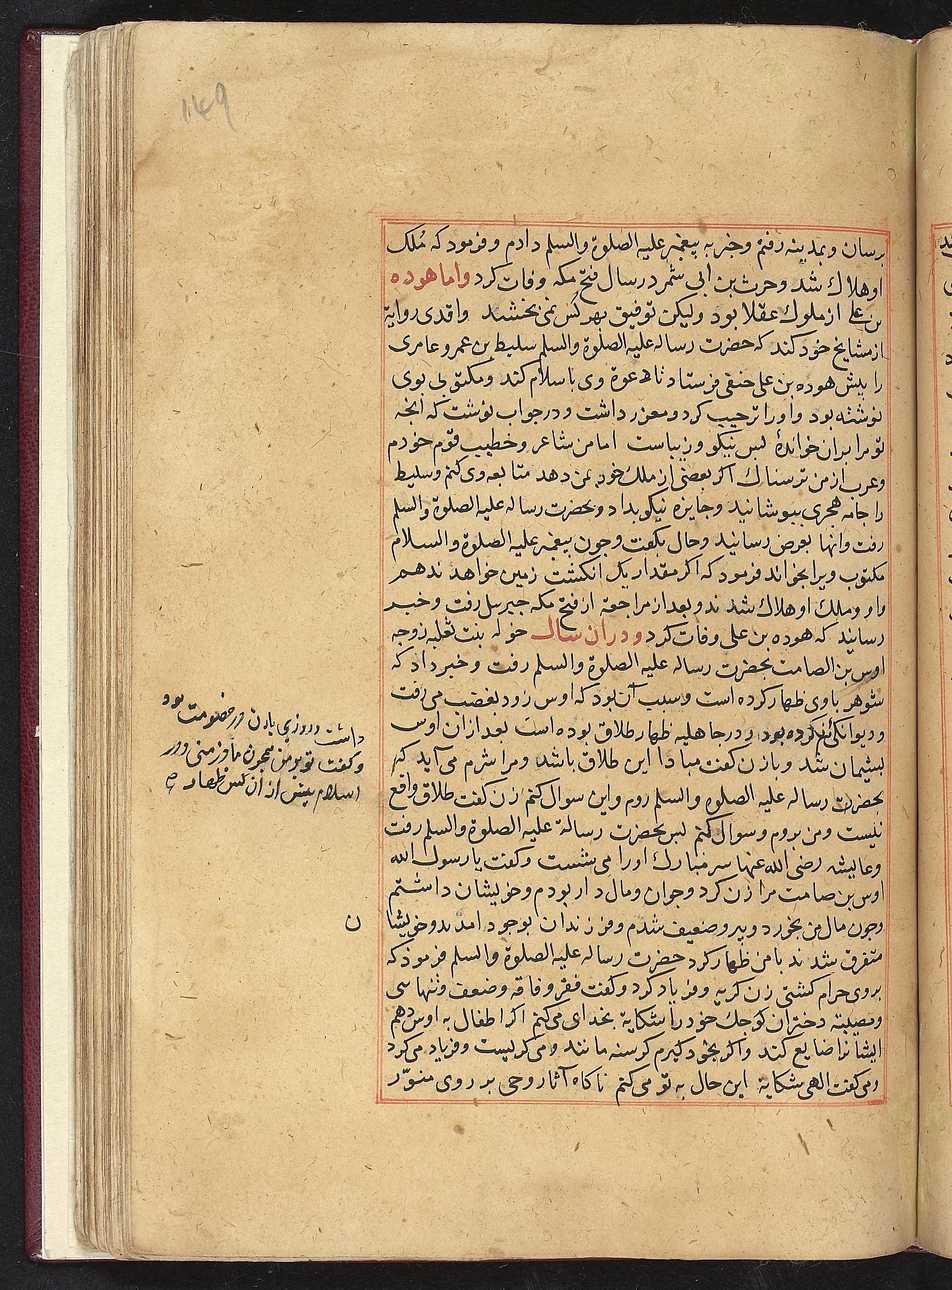 ۱۴۹
رسان و بمدینه رفتم وخبر به پیغمبر علیه الصلوة والسلم دادم و فرمود که مُلک
او هلاک شد وحرث بن ابی شمر در سال فتح مکه وفات کرد واما هوده
بن علی از ملوک عقلا بود ولیکن توفیق بهر کس نمی بخشند واقدی روایة
از مشایخ خود کند که حضرت رساله علیه الصلوة والسلم سلیط بن عمرو عامری
را پیش هوده بن علی حنفی فرستاد تا دعوة وی باسلام کند ومکتوبی بوی
نوشته بود واو را ترحیب کرد ومعزز داشت ودر جواب نوشت که آنچه
تو مرا بران خواندهٔ بس نیکو وزیباست اما من شاعر وخطیب قوم خودم
وعرب از من ترسناک اکر بعضی از ملک خود بمن دهد متابعه وی کنم وسلیط
را جامه هجری بپوشانید وجایزه نیکو بداد وبحضرت رساله علیه الصلوة والسلم
رفت وانها بعرض رسانید وحال بکفت وچون پیغمبر علیه الصلوة والسلام
مکتوب ویرا بخواند فرمود که اکر مقدار یک انکشت زمین خواهد ندهم
واو وملک او هلاک شدند وبعد از مراجعة از فتح مکه جبرییل رفت وخبر
رسانید که هوده بن علی وفات کرد ودران سال خوله بنت ثعلبه زوجه
اوس بن الصامت بحضرت رساله علیه الصلوة والسلم رفت وخبر داد که
شوهر باوی ظهار کرده است وسبب آن بود که اوس زود بغضب می رفت
ودیوانکی کرده بود ودر جاهلیه ظهار طلاق بوده است بعد ازان اوس
پشیمان شد وبازن کفت مبادا این طلاق باشد ومرا شرم می آید که
بحضرت رساله علیه الصلوه والسلم روم واین سوال کنم زن کفت طلاق واقع
نیست ومن بروم وسوال کنم پس بحضرت رسالة علیه الصلوة والسلم رفت
وعایشه رضی الله عنها سر مبارک اورا می شست وکفت یا رسول الله
اوس بن صامت مرا زن کرد وجوان ومال دار بودم وخویشان داشتم
وچون مال من بخورد وپیر وضعیف شدم وفرزندان بوجود امدند وخویشا
متفرق شدند بامن ظهار کرد حضرت رساله علیه الصلوة والسلم فرمود که
بروی حرام کشتی زن کریه وفریاد کرد وکفت فقر وفاقه وضعف وتنهاسی
ومصیبته دختران کوچک خود را شکایة بخدای می کنم اکر اطفال به اوس دهم
ایشانرا ضایع کند واکر بخود کیرم کرسنه مانند ومی کریست وفریاد می کرد
ومی کفت الهی شکایة این حال به تو می کنم ناکاه آثار وحی بر روی منوّر
داشت وروزی بازن در خصومت بود
وکفت تو بر من همچون مادر منی ودر
اسلام پیش از آن کس ظهار
ن